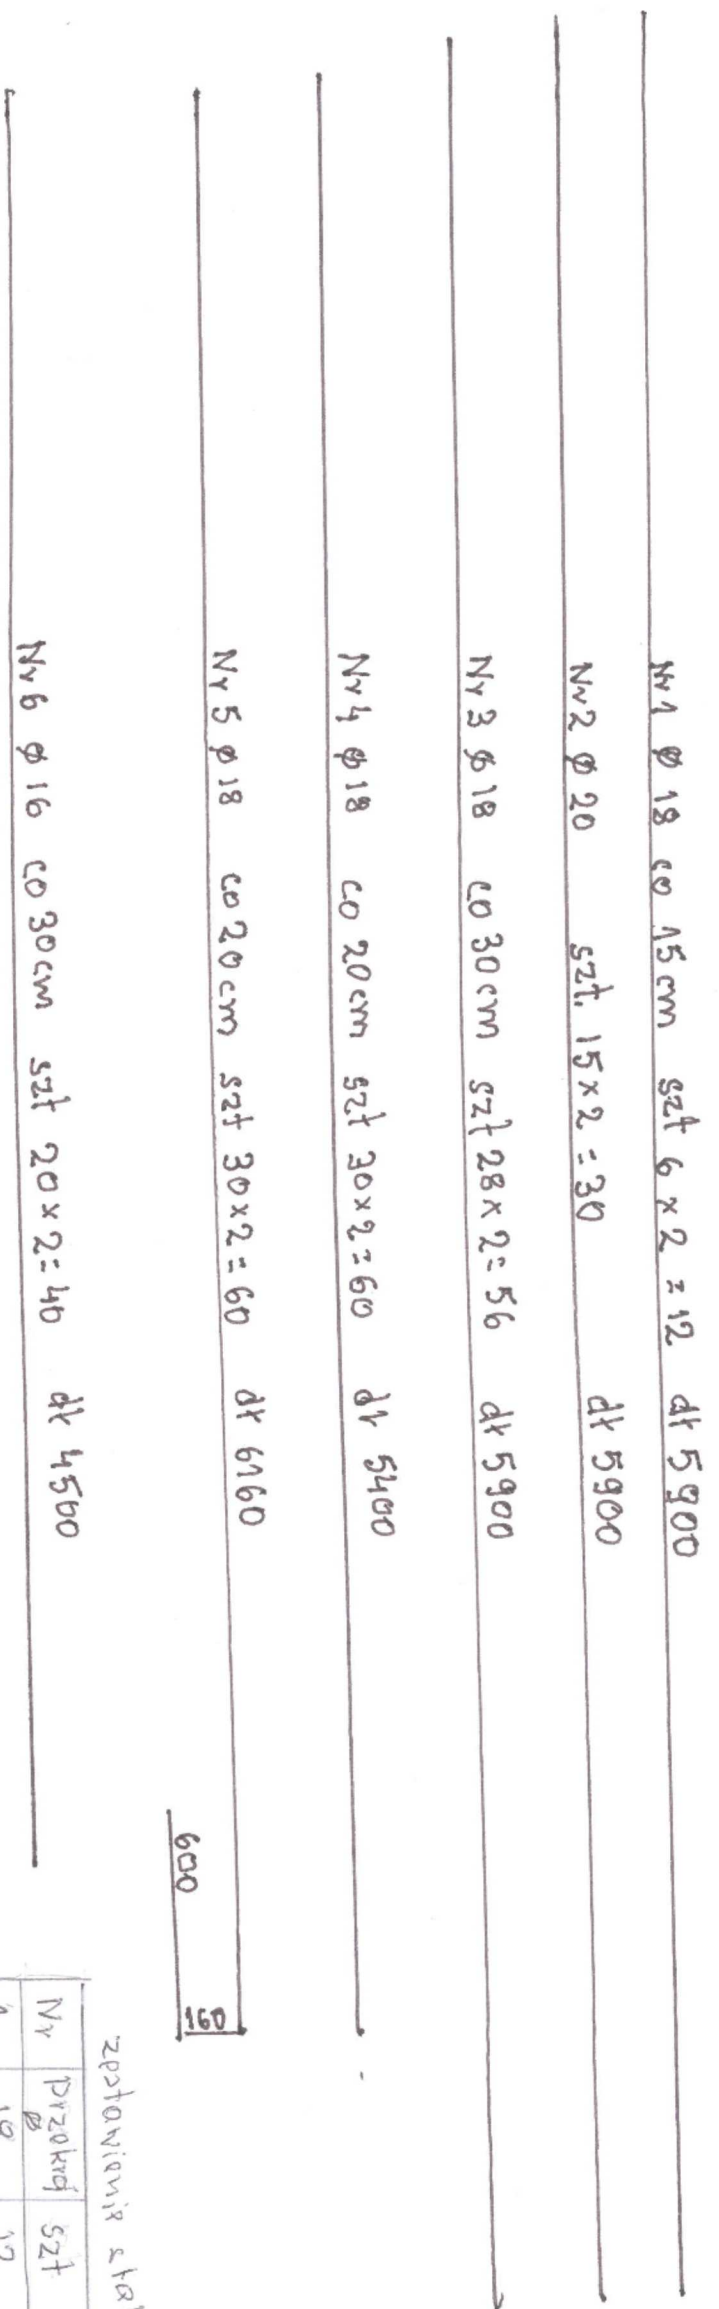 Nr 1 ø 18 co 15 cm szt 6 x 2 = 12 dł 5900
Nr 2 ø 20 szt. 15 x 2 = 30 dł 5900
Nr 3 ø 18 co 30 cm szt 28 x 2 = 56 dł 5900
Nr 4 ø 18 co 20 cm szt 30 x 2 = 60 dł 5400
Nr 5 ø 18 co 20 cm szt 30 x 2 = 60 dł 6160
160
600
Nr 6 ø 16 co 30 cm szt 20 x 2 = 40 dł 4500
zestawienie
Nr Przekrój ø szt